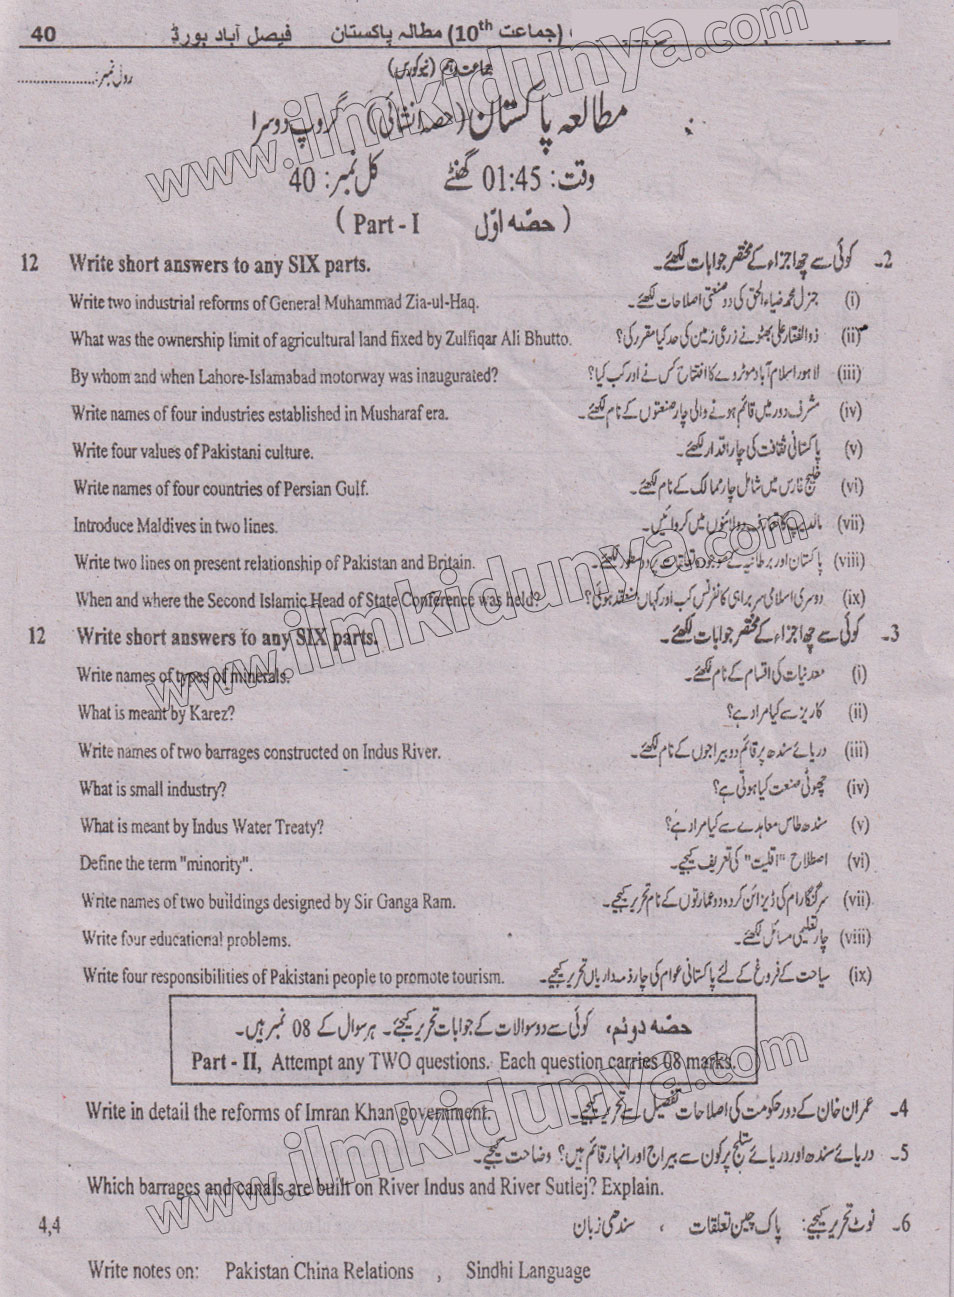 40 فیصل آباد بورڈ (جماعت 10th) مطالہ پاکستان
رول نمبر:.....................
جماعت دہم (نیو کورس)
مطالعہ پاکستان (حصہ انشائی) گروپ دوسرا
وقت: 01:45 گھنٹے کل نمبر: 40
( حصّہ اوّل Part - I )
12 Write short answers to any SIX parts. 2۔ کوئی سے چھ اجزاء کے مختصر جوابات لکھئے۔
Write two industrial reforms of General Muhammad Zia-ul-Haq. (i) جنرل محمد ضیاء الحق کی دو صنعتی اصلاحات لکھئے۔
What was the ownership limit of agricultural land fixed by Zulfiqar Ali Bhutto. (ii) ذوالفقار علی بھٹو نے زرعی زمین کی حد کیا مقرر کی؟
By whom and when Lahore-Islamabad motorway was inaugurated? (iii) لاہور اسلام آباد موٹروے کا افتتاح کس نے اور کب کیا؟
Write names of four industries established in Musharaf era. (iv) مشرف دور میں قائم ہونے والی چار صنعتوں کے نام لکھئے۔
Write four values of Pakistani culture. (v) پاکستانی ثقافت کی چار اقدار لکھئے۔
Write names of four countries of Persian Gulf. (vi) خلیج فارس میں شامل چار ممالک کے نام لکھئے۔
Introduce Maldives in two lines. (vii) مالدیپ کا تعارف دو لائنوں میں کروائیں۔
Write two lines on present relationship of Pakistan and Britain. (viii) پاکستان اور برطانیہ کے موجودہ تعلقات پر دو سطور لکھئے۔
When and where the Second Islamic Head of State Conference was held? (ix) دوسری اسلامی سربراہی کانفرنس کب اور کہاں منعقد ہوئی؟
12 Write short answers to any SIX parts. 3۔ کوئی سے چھ اجزاء کے مختصر جوابات لکھئے۔
Write names of types of minerals. (i) معدنیات کی اقسام کے نام لکھئے۔
What is meant by Karez? (ii) کاریز سے کیا مراد ہے؟
Write names of two barrages constructed on Indus River. (iii) دریائے سندھ پر قائم دو بیراجوں کے نام لکھئے۔
What is small industry? (iv) چھوٹی صنعت کیا ہوتی ہے؟
What is meant by Indus Water Treaty? (v) سندھ طاس معاہدے سے کیا مراد ہے؟
Define the term "minority". (vi) اصطلاح "اقلیت" کی تعریف کیجیے۔
Write names of two buildings designed by Sir Ganga Ram. (vii) سر گنگا رام کی ڈیزائن کردہ دو عمارتوں کے نام تحریر کیجیے۔
Write four educational problems. (viii) چار تعلیمی مسائل لکھئے۔
Write four responsibilities of Pakistani people to promote tourism. (ix) سیاحت کے فروغ کے لئے پاکستانی عوام کی چار ذمہ داریاں تحریر کیجیے۔
حصہ دوئم، کوئی سے دو سوالات کے جوابات تحریر کیجئے۔ ہر سوال کے 08 نمبر ہیں۔
Part - II, Attempt any TWO questions. Each question carries 08 marks.
Write in detail the reforms of Imran Khan government. 4۔ عمران خان کے دور حکومت کی اصلاحات تفصیل سے تحریر کیجیے۔
5۔ دریائے سندھ اور دریائے ستلج پر کون سے بیراج اور انہار قائم ہیں؟ وضاحت کیجیے۔
Which barrages and canals are built on River Indus and River Sutlej? Explain.
4,4 6۔ نوٹ تحریر کیجیے: پاک چین تعلقات ، سندھی زبان
Write notes on: Pakistan China Relations , Sindhi Language
www.ilmkidunya.com
www.ilmkidunya.com
www.ilmkidunya.com